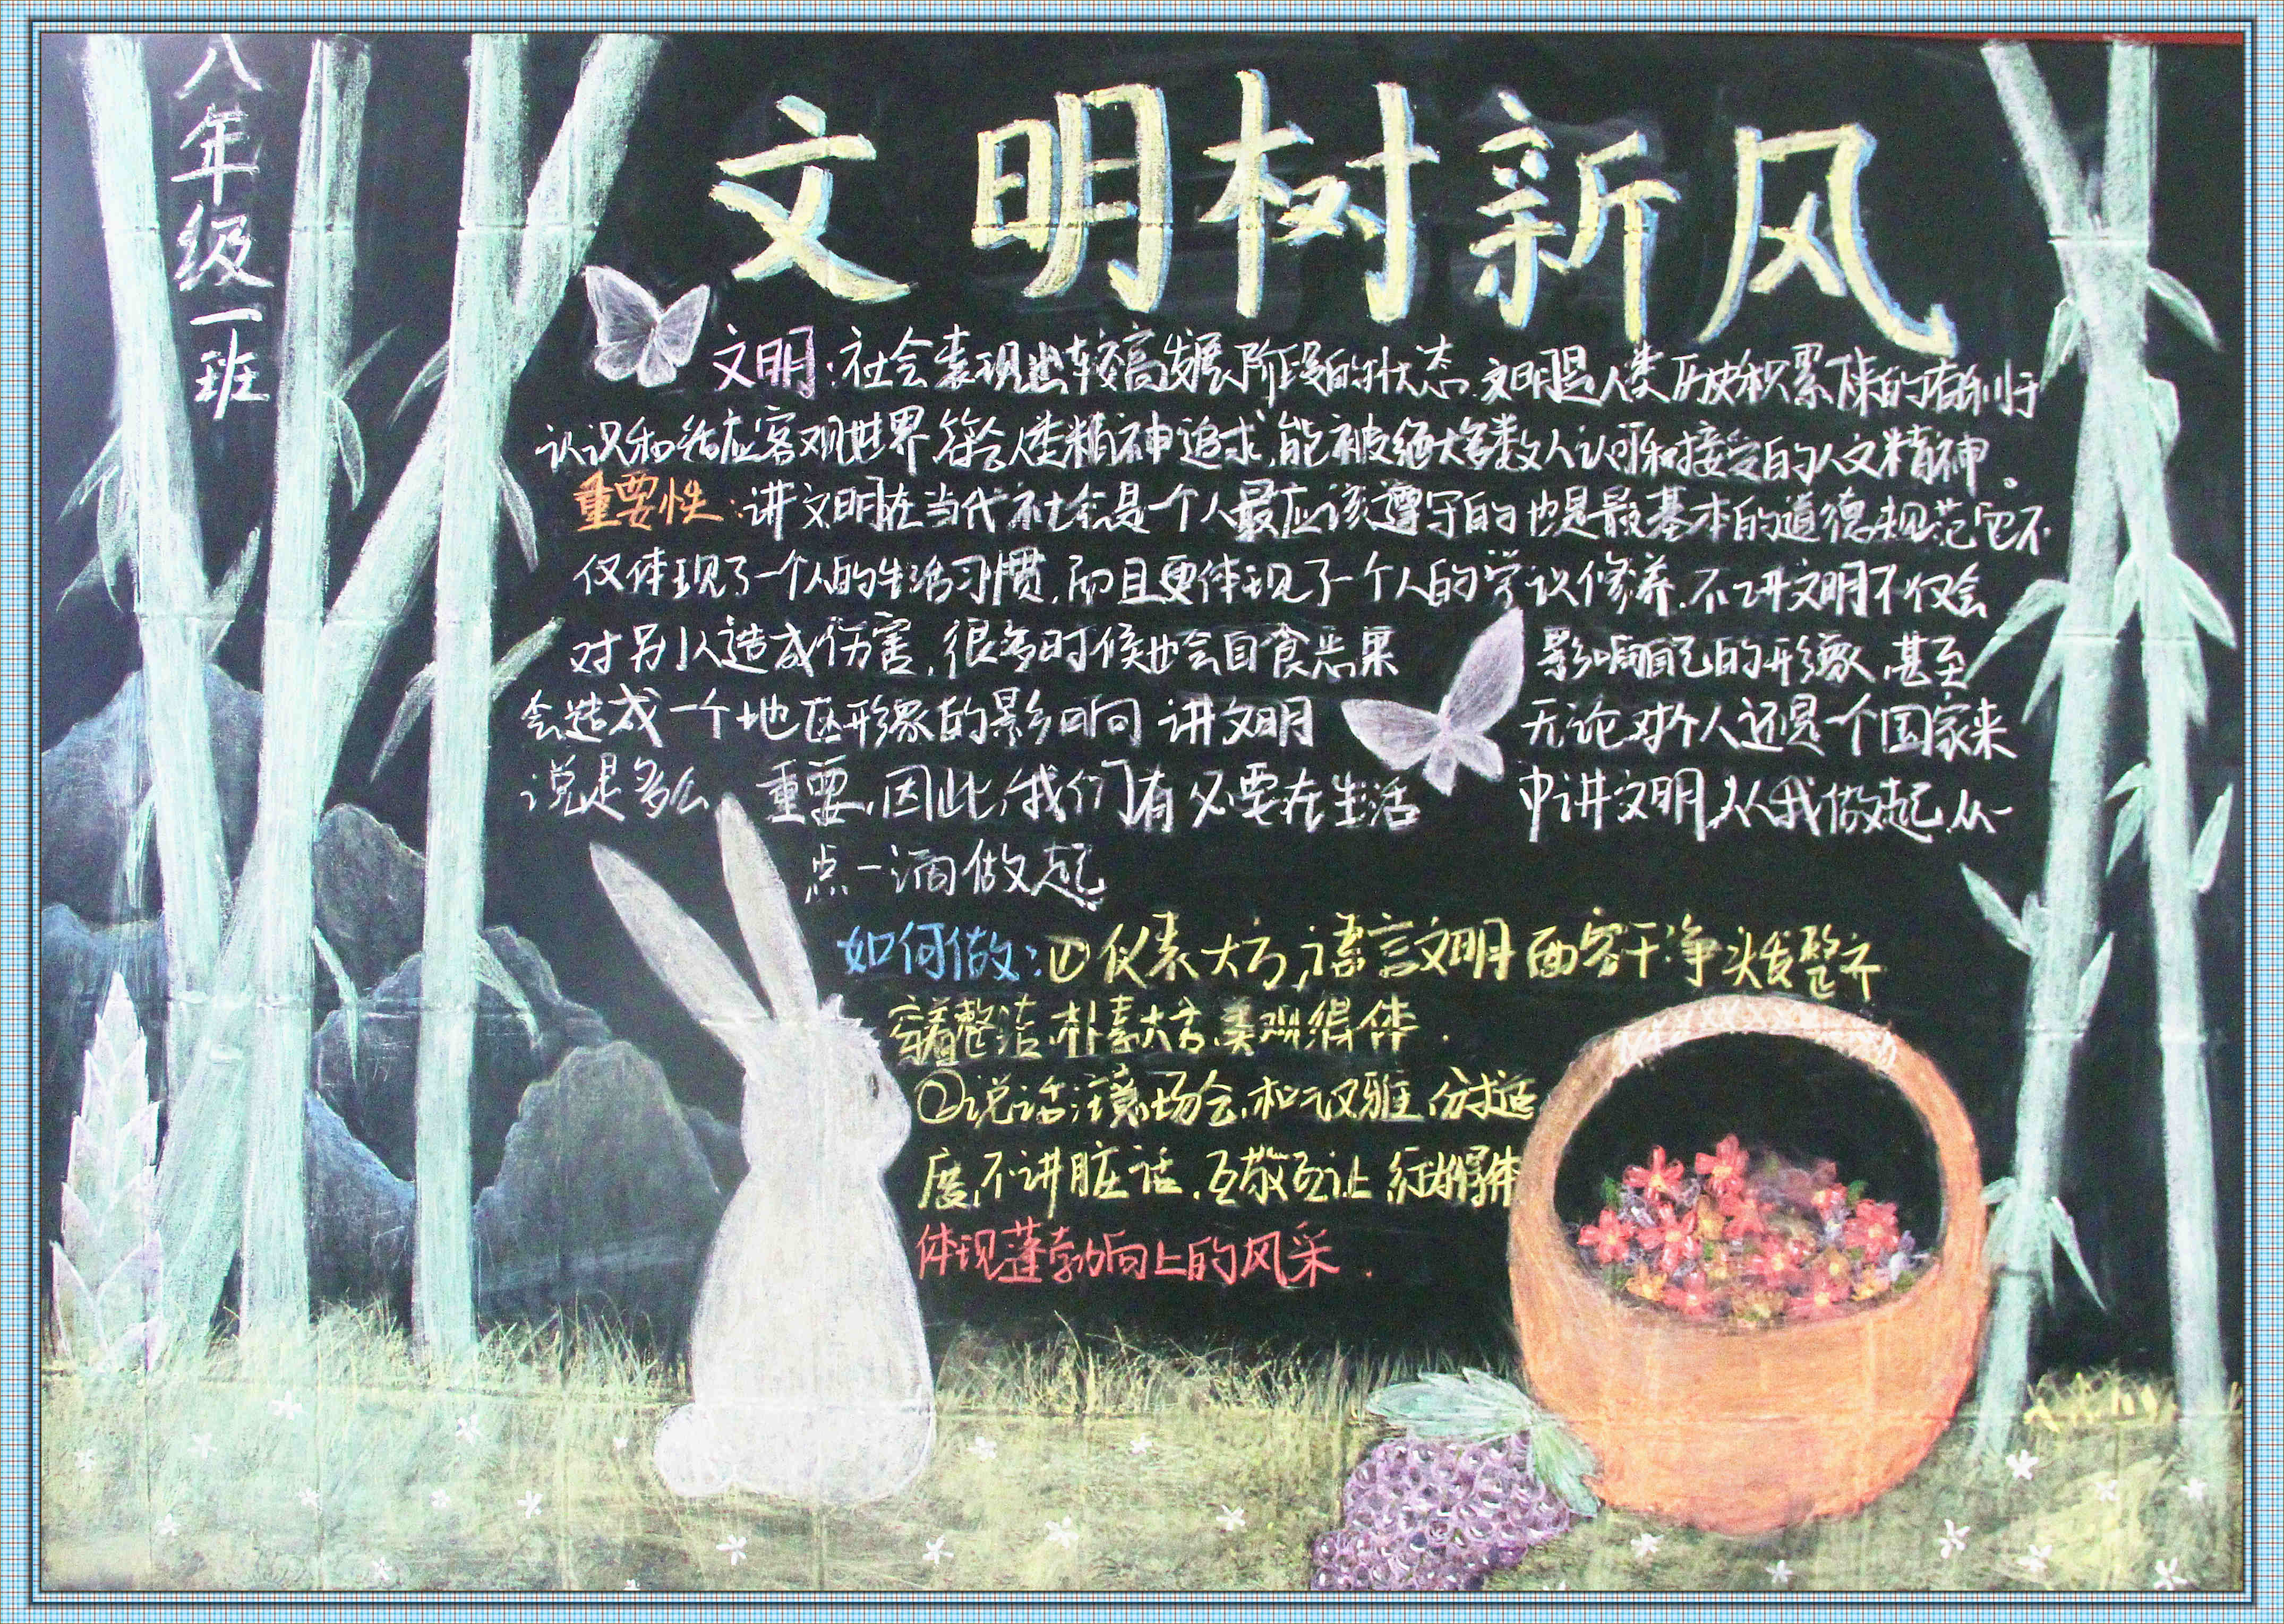 八年级一班
文明树新风
文明:社会表现出较高发展阶段的状态.文明是人类历史积累下来的有利于
认识和适应客观世界,符合人类精神追求,能被绝大多数人认可和接受的人文精神。
重要性:讲文明在当代社会是一个人最应该遵守的也是最基本的道德规范它不
仅体现了一个人的生活习惯,而且更体现了一个人的学识修养.不讲文明不仅会
对别人造成伤害,很多时候也会自食恶果 影响自己的形象,甚至
会造成一个地区形象的影响 讲文明 无论对个人还是一个国家来
说是多么 重要,因此,我们有必要在生活 中讲文明,从我做起.从一
点一滴做起
如何做:①仪表大方,语言文明 面容干净 头发整齐
穿着整洁,朴素大方,美观得体.
②说话注意场合,和汉雅,分才适
度,不讲脏话,互敬互让,行为得体
体现蓬勃向上的风采.